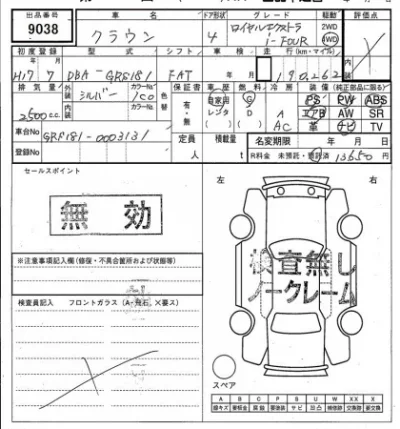 出品番号 車名 ドア形状 グレード 駆動 評価点
9038 クラウン 4 ロイヤルエクストラ i-FOUR 2WD 4WD
初度登録 型式 シフト 車検 走行(km・マイル) 内装
H17年 7月 DBA-GRS181 FAT 年 月 190,262
排気量 外装 シルバー カラーNo. 1C0 色替 保証書 車歴 燃料 冷房 装備(純正部品に限る)
2500cc 内装 カラーNo. 有・無 自家用 レンタ ( ) G D ( ) A AC PS PW ABS
エアB AW SR
革 ナビ TV
車台No GRS181-0003131 定員 人 積載量 t 名変期限 年 月 日
登録No R料金 未預託・預託済 13650円
セールスポイント
無効
左 右
※注意事項記入欄(修復・不具合箇所および状態等)
検査無し
ノークレーム
検査員記入 フロントガラス(A・飛石、X要ス)
スペア
A B C P S U W X XX
線キズ 要板金 腐蝕 要塗装 サビ 凹凸 補修跡 交換跡 要交換